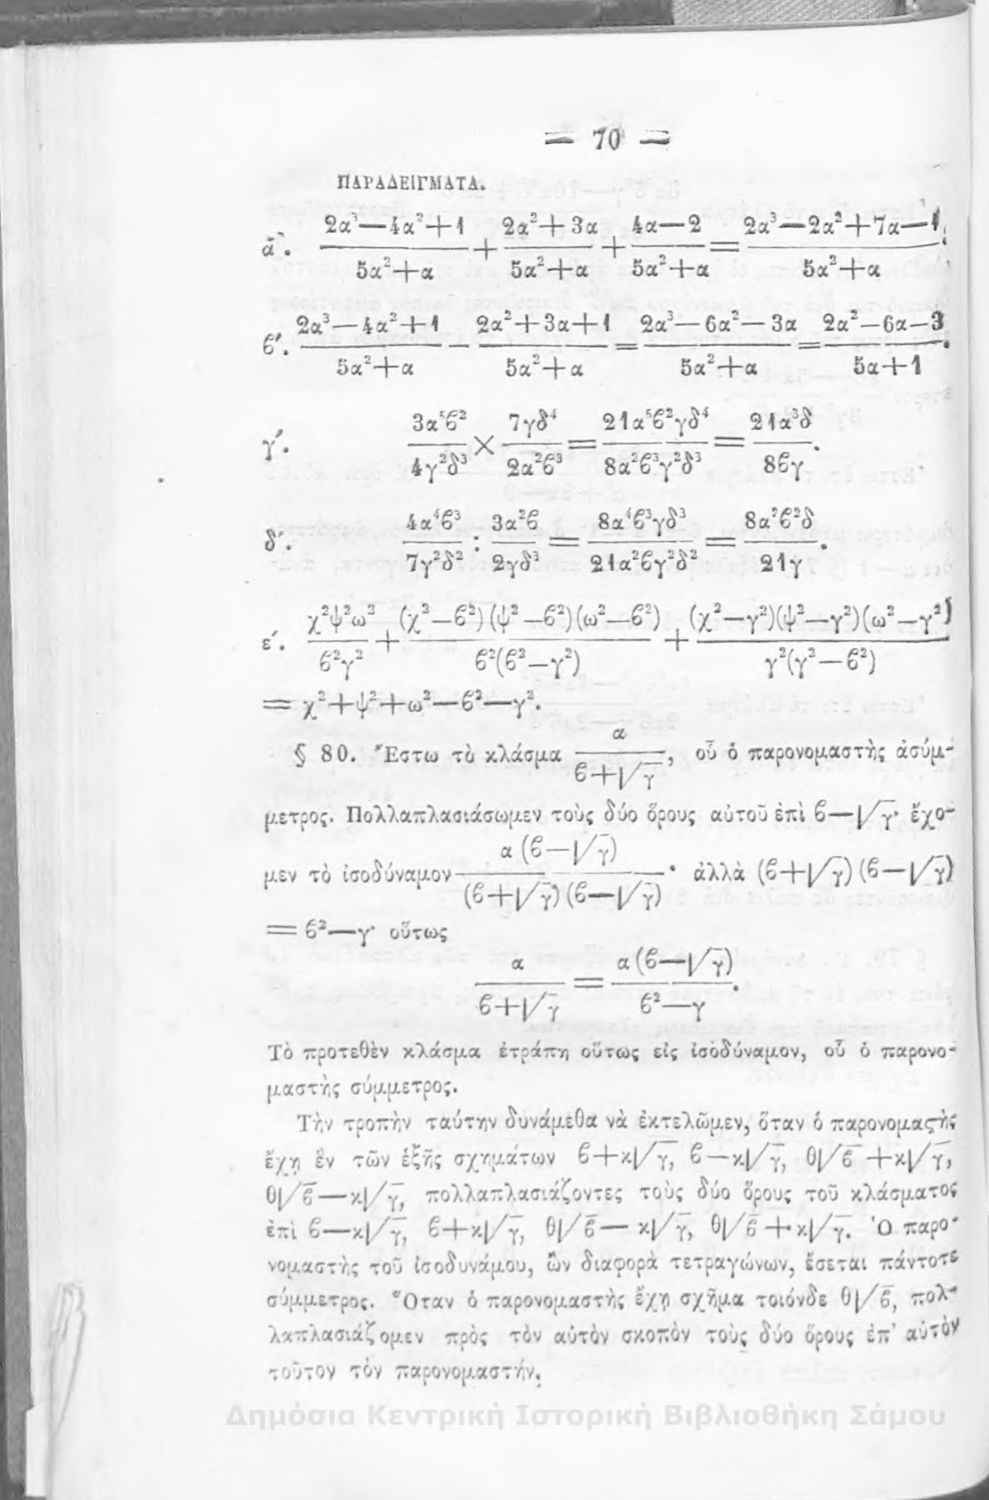 = 70 =
ΠΑΡΑΔΕΙΓΜΑΤΑ.
α΄. (2α³—4α²+1)/(5α²+α) + (2α²+3α)/(5α²+α) + (4α—2)/(5α²+α) = (2α³—2α²+7α—1)/(5α²+α).
ϐ΄. (2α³—4α²+1)/(5α²+α) — (2α²+3α+1)/(5α²+α) = (2α³—6α²—3α)/(5α²+α) = (2α²—6α—3)/(5α+1).
γ΄. (3α⁵ϐ²)/(4γ²δ³) × (7γδ⁴)/(2α²ϐ³) = (21α⁵ϐ²γδ⁴)/(8α²ϐ³γ²δ³) = (21α³δ)/(8ϐγ).
δ΄. (4α⁴ϐ³)/(7γ²δ²) : (3α²ϐ)/(2γδ³) = (8α⁴ϐ³γδ³)/(21α²ϐγ²δ²) = (8α²ϐ²δ)/(21γ).
ε΄. (χ²ψ²ω²)/(ϐ²γ²) + ((χ²—ϐ²)(ψ²—ϐ²)(ω²—ϐ²))/(ϐ²(ϐ²—γ²)) + ((χ²—γ²)(ψ²—γ²)(ω²—γ²))/(γ²(γ²—ϐ²))
= χ²+ψ²+ω²—ϐ²—γ².
§ 80. Ἔστω τὸ κλάσμα α/(ϐ+√γ), οὗ ὁ παρονομαστὴς ἀσύμ-
μετρος. Πολλαπλασιάσωμεν τοὺς δύο ὅρους αὐτοῦ ἐπὶ ϐ—√γ· ἔχο-
μεν τὸ ἰσοδύναμον (α(ϐ—√γ))/((ϐ+√γ)(ϐ—√γ))· ἀλλὰ (ϐ+√γ)(ϐ—√γ)
= ϐ²—γ· οὕτως
α/(ϐ+√γ) = (α(ϐ—√γ))/(ϐ²—γ).
Τὸ προτεθὲν κλάσμα ἐτράπη οὕτως εἰς ἰσοδύναμον, οὗ ὁ παρονο-
μαστὴς σύμμετρος.
Τὴν τροπὴν ταύτην δυνάμεθα νὰ ἐκτελῶμεν, ὅταν ὁ παρονομαϛὴς
ἔχῃ ἓν τῶν ἑξῆς σχημάτων ϐ+κ√γ, ϐ—κ√γ, θ√ϐ+κ√γ,
θ√ϐ—κ√γ, πολλαπλασιάζοντες τοὺς δύο ὅρους τοῦ κλάσματος
ἐπὶ ϐ—κ√γ, ϐ+κ√γ, θ√ϐ—κ√γ, θ√ϐ+κ√γ. Ὁ παρο-
νομαστὴς τοῦ ἰσοδυνάμου, ὢν διαφορὰ τετραγώνων, ἔσεται πάντοτε
σύμμετρος. Ὅταν ὁ παρονομαστὴς ἔχῃ σχῆμα τοιόνδε θ√ϐ, πολ-
λαπλασιάζομεν πρὸς τὸν αὐτὸν σκοπὸν τοὺς δύο ὅρους ἐπ' αὐτὸν
τοῦτον τὸν παρονομαστήν.
Δημόσια Κεντρική Ιστορική Βιβλιοθήκη Σάμου